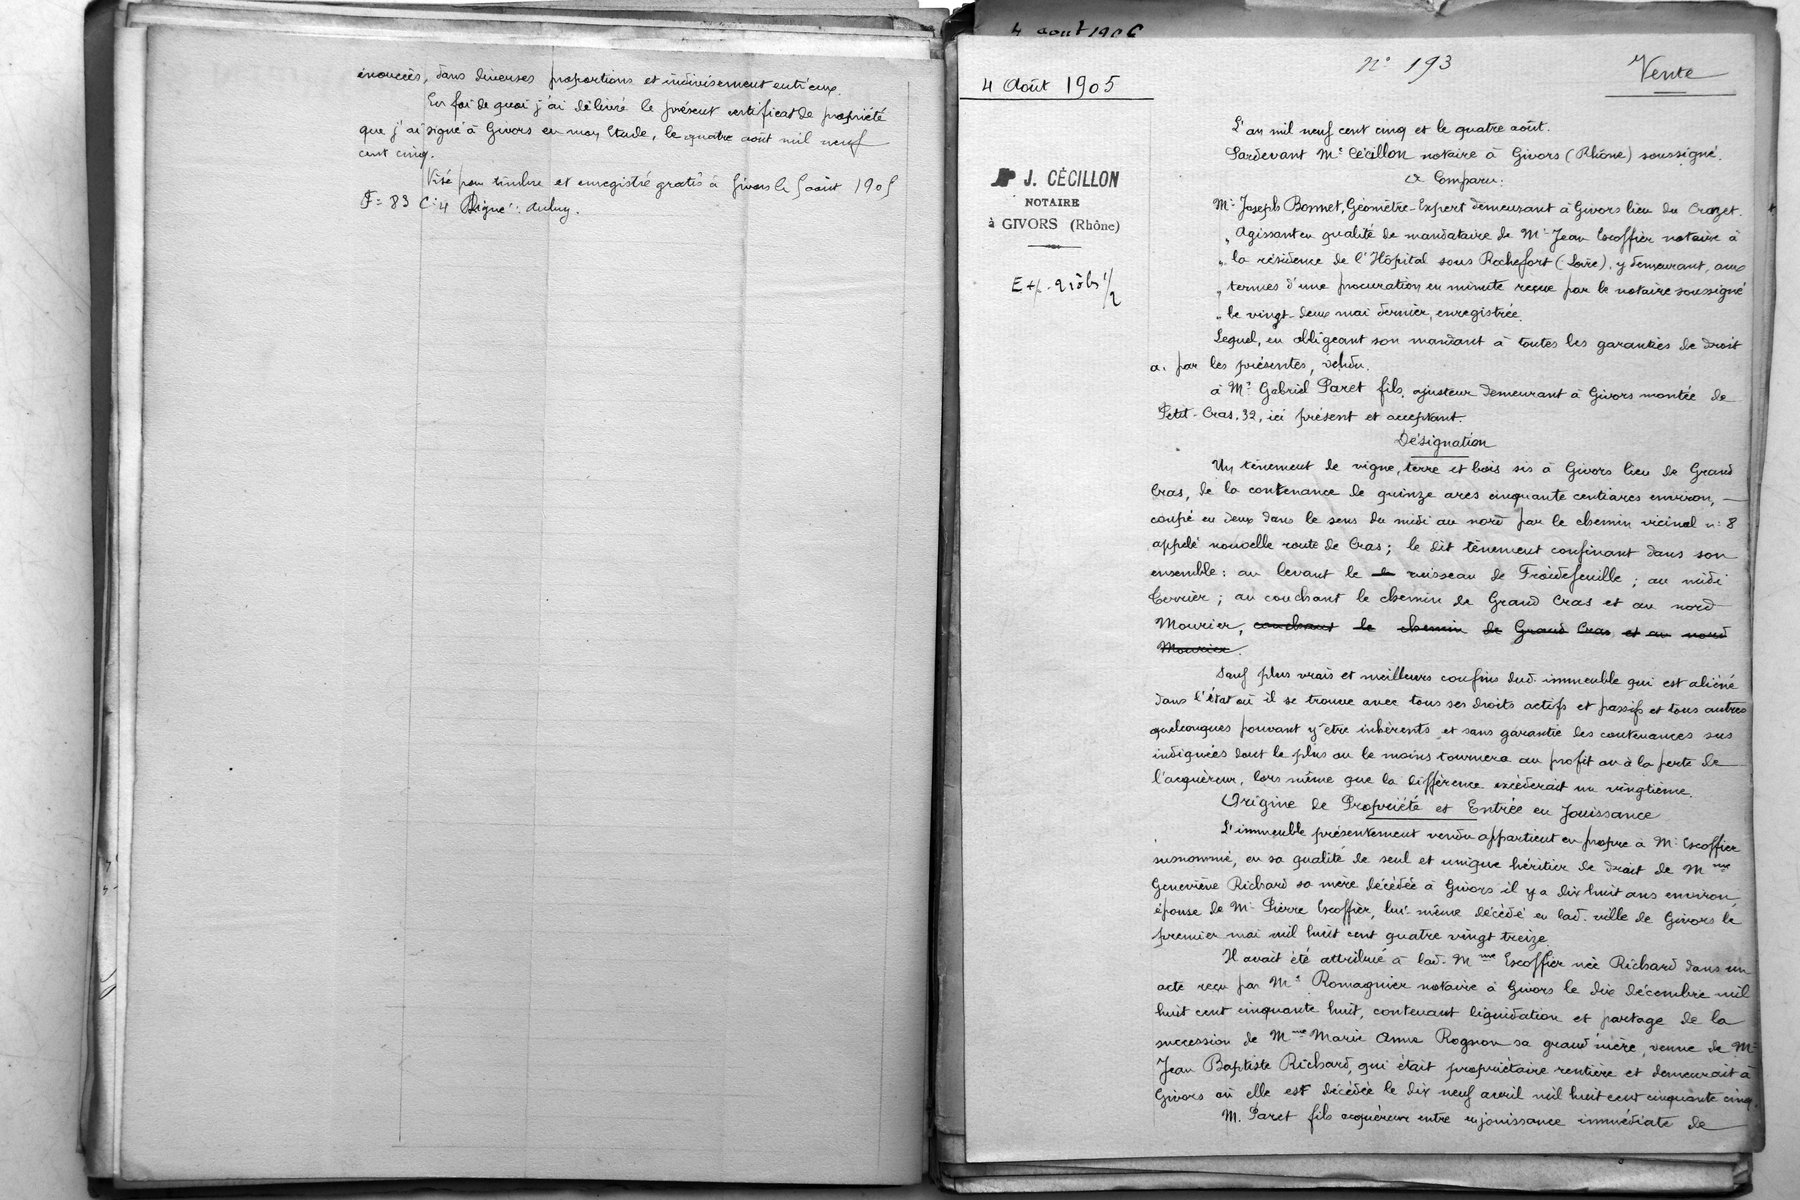 énoncées, dans diverses proportions et indivisément entr'eux.
En foi de quoi j'ai délivré le présent certificat de propriété
que j'ai signé à Givors en mon Etude, le quatre août mil neuf
cent cinq.
Visé pour timbre et enregistré gratis à Givors le 5 août 1905
F° 83 C° 4 Signé: Aubry.
4 août 1906
4 Août 1905
N° 193
Vente
J. CÉCILLON
NOTAIRE
à GIVORS (Rhône)
L'an mil neuf cent cinq et le quatre août.
Pardevant Me Cécillon notaire à Givors (Rhône) soussigné.
A Comparu:
Mr Joseph Bonnet, Géomètre-Expert demeurant à Givors lieu du Crozet.
„ Agissant en qualité de mandataire de Mr Jean Escoffier notaire à
„ la résidence de l'Hôpital sous Rochefort (Loire), y demeurant, aux
„ termes d'une procuration en minute reçue par le notaire soussigné
„ le vingt-deux mai dernier, enregistrée.
Lequel, en obligeant son mandant à toutes les garanties de droit
a, par les présentes, vendu.
à Mr Gabriel Paret fils, ajusteur demeurant à Givors montée de
Petit-Cras, 32, ici présent et acceptant.
Désignation
Un tènement de vigne, terre et bois sis à Givors lieu de Grand
Cras, de la contenance de quinze ares cinquante centiares environ, —
coupé en deux dans le sens du midi au nord par le chemin vicinal n° 8
appelé nouvelle route de Cras; le dit tènement confinant dans son
ensemble: au levant le le ruisseau de Froidefeuille; au midi
Terrier; au couchant le chemin de Grand Cras et au nord
Mourier, couchant le chemin de Grand Cras et au nord
Mourier.
Sauf plus vrais et meilleurs confins dud. immeuble qui est aliéné
dans l'état où il se trouve avec tous ses droits actifs et passifs et tous autres
quelconques pouvant y être inhérents et sans garantie des contenances sus
indiquées dont le plus ou le moins tournera au profit ou à la perte de
l'acquéreur, lors même que la différence excèderait un vingtième.
Origine de Propriété et Entrée en Jouissance
L'immeuble présentement vendu appartient en propre à Mr Escoffier
susnommé, en sa qualité de seul et unique héritier de droit de Mme
Geneviève Richard sa mère décédée à Givors il y a dix huit ans environ,
épouse de Mr Pierre Escoffier, lui-même décédé en lad. ville de Givors le
premier mai mil huit cent quatre vingt treize.
Il avait été attribué à lad. Mme Escoffier née Richard dans un
acte reçu par Me Romagnier notaire à Givors le dix décembre mil
huit cent cinquante huit, contenant liquidation et partage de la
succession de Mme Marie Anne Rognon sa grand'mère, veuve de Mr
Jean Baptiste Richard, qui était propriétaire rentière et demeurait à
Givors où elle est décédée le dix neuf avril mil huit cent cinquante cinq.
M. Paret fils acquéreur entre en jouissance immédiate de